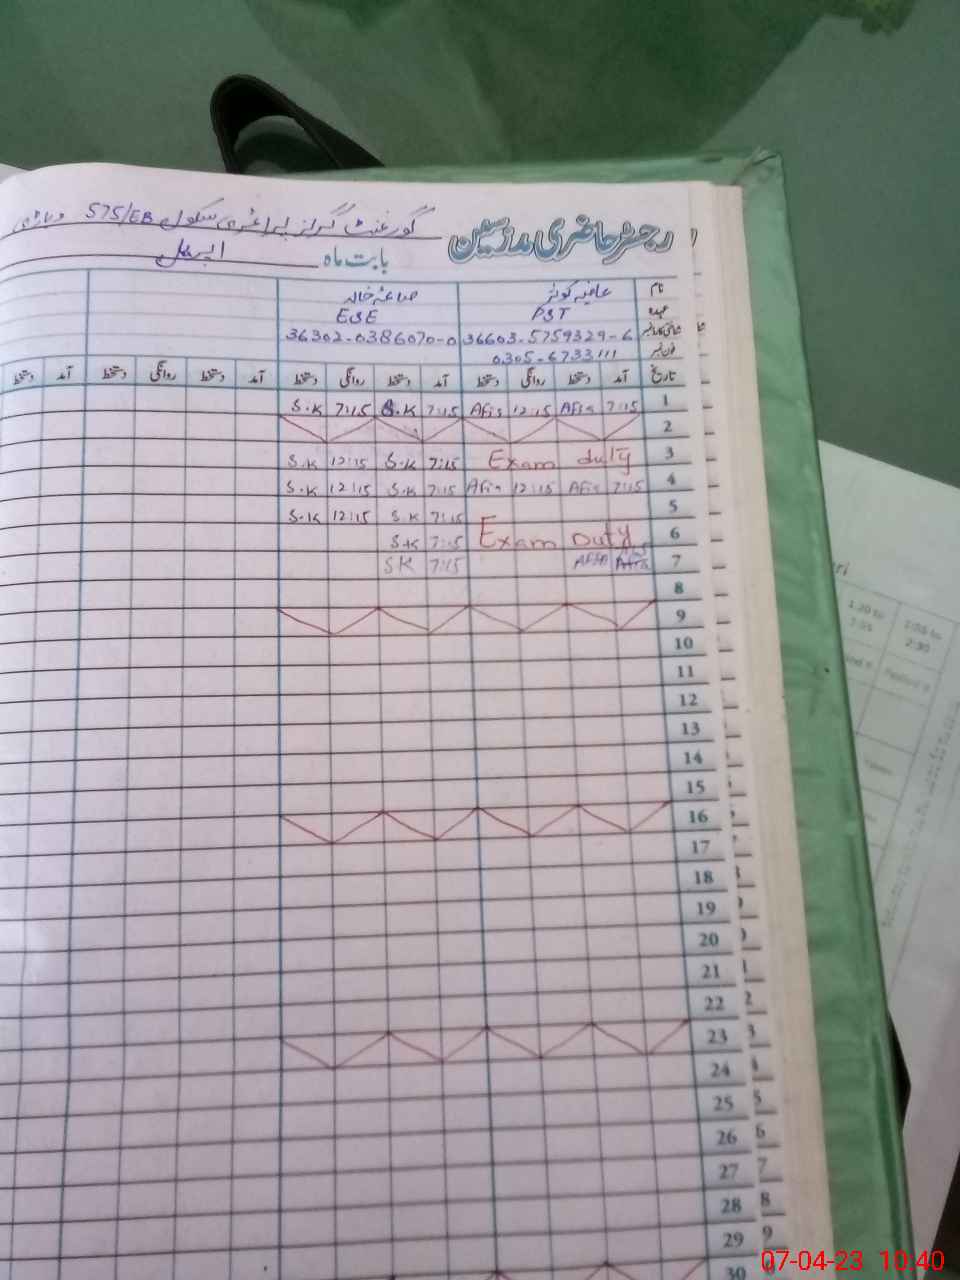 رجسٹر حاضری مدرسین گورنمنٹ گرلز پرائمری سکول 575/EB وہاڑی
بابت ماہ اپریل
نام عافیہ کوثر
عہدہ PST ESE
شناختی کارڈ نمبر 36603-5759329-6 36302-0386070-0
فون نمبر 0305-6733111
تاریخ آمد دستخط روانگی دستخط آمد دستخط روانگی دستخط آمد دستخط روانگی دستخط آمد دستخط
1 7:15 Afia 12:15 Afia 7:15 S.K 7:15 S.K
2
3 Exam duty 7:15 S.K 12:15 S.K
4 7:15 Afia 12:15 Afia 7:15 S.K 12:15 S.K
5 7:15 S.K 12:15 S.K
6 Exam Duty 7:15 S.K
7 Afia 7:15 SK
8
9
10
11
12
13
14
15
16
17
18
19
20
21
22
23
24
25
26
27
28
29
30
1:20 to
1:55 to
2:30
07-04-23 10:40